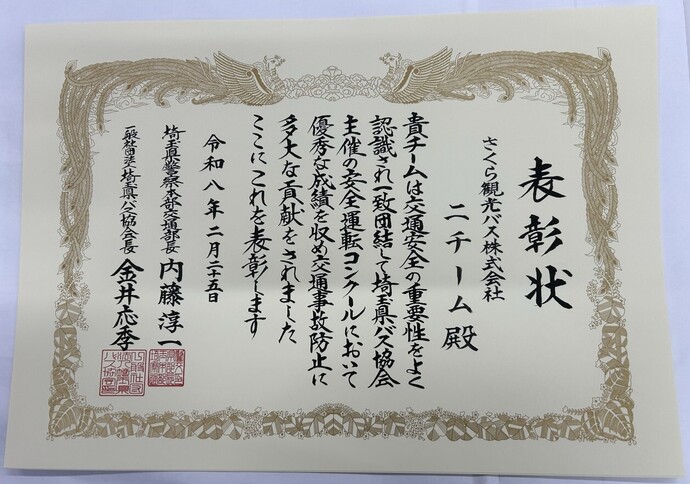 表彰状
さくら観光バス株式会社
ニチーム殿
貴チームは交通安全の重要性をよく
認識され一致団結して埼玉県バス協会
主催の安全運転コンクールにおいて
優秀な成績を収め交通事故防止に
多大な貢献をされました
ここにこれを表彰します
令和八年二月二十五日
埼玉県警察本部交通部長 内藤淳一
一般社団法人埼玉県バス協会会長 金井応季